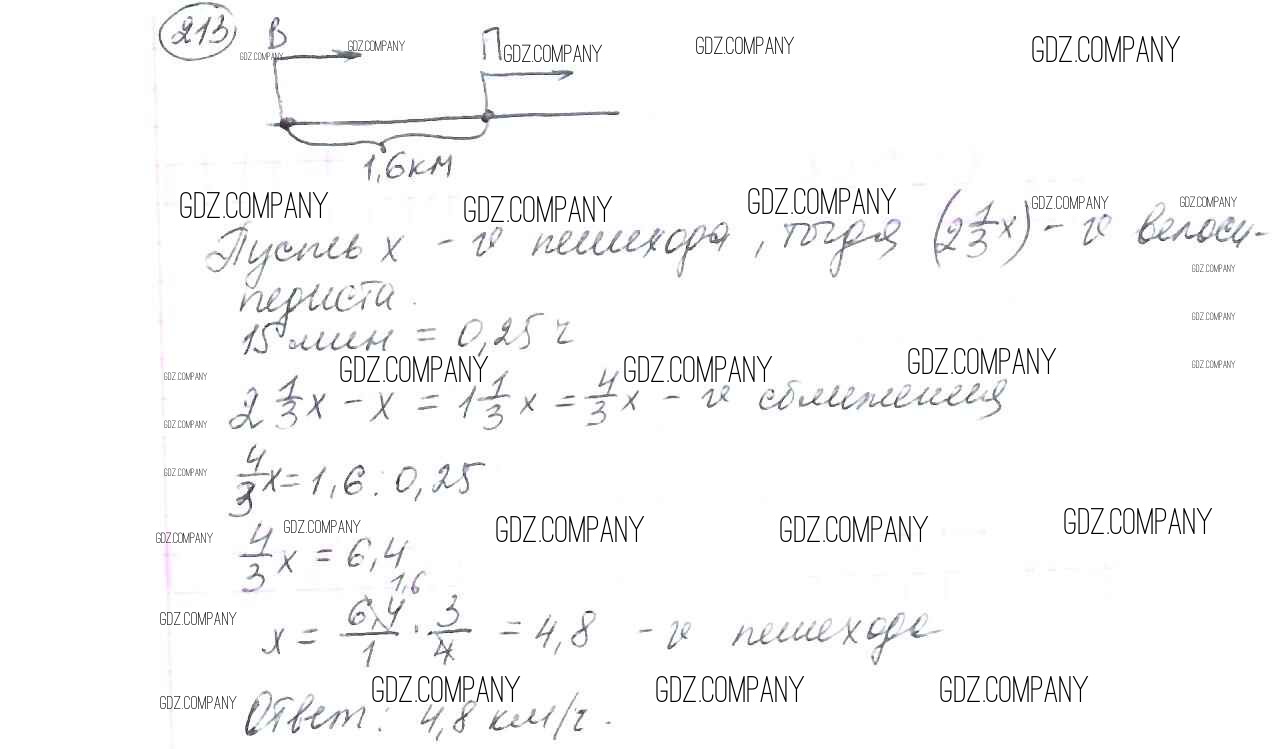 213 В П
GDZ.COMPANY GDZ.COMPANY GDZ.COMPANY GDZ.COMPANY GDZ.COMPANY
1,6 км
GDZ.COMPANY GDZ.COMPANY GDZ.COMPANY GDZ.COMPANY GDZ.COMPANY
Пусть x – v пешехода, тогда (2 1/3 x) – v велоси-
GDZ.COMPANY
педиста.
GDZ.COMPANY
15 мин = 0,25 ч
GDZ.COMPANY GDZ.COMPANY GDZ.COMPANY GDZ.COMPANY
GDZ.COMPANY
2 1/3 x – x = 1 1/3 x = 4/3 x – v сближения
GDZ.COMPANY
GDZ.COMPANY
4/3 x = 1,6 : 0,25
GDZ.COMPANY GDZ.COMPANY GDZ.COMPANY GDZ.COMPANY GDZ.COMPANY
4/3 x = 6,4
1,6
GDZ.COMPANY
x = 6,4/1 · 3/4 = 4,8 – v пешехода
GDZ.COMPANY GDZ.COMPANY GDZ.COMPANY GDZ.COMPANY
Ответ: 4,8 км/ч.